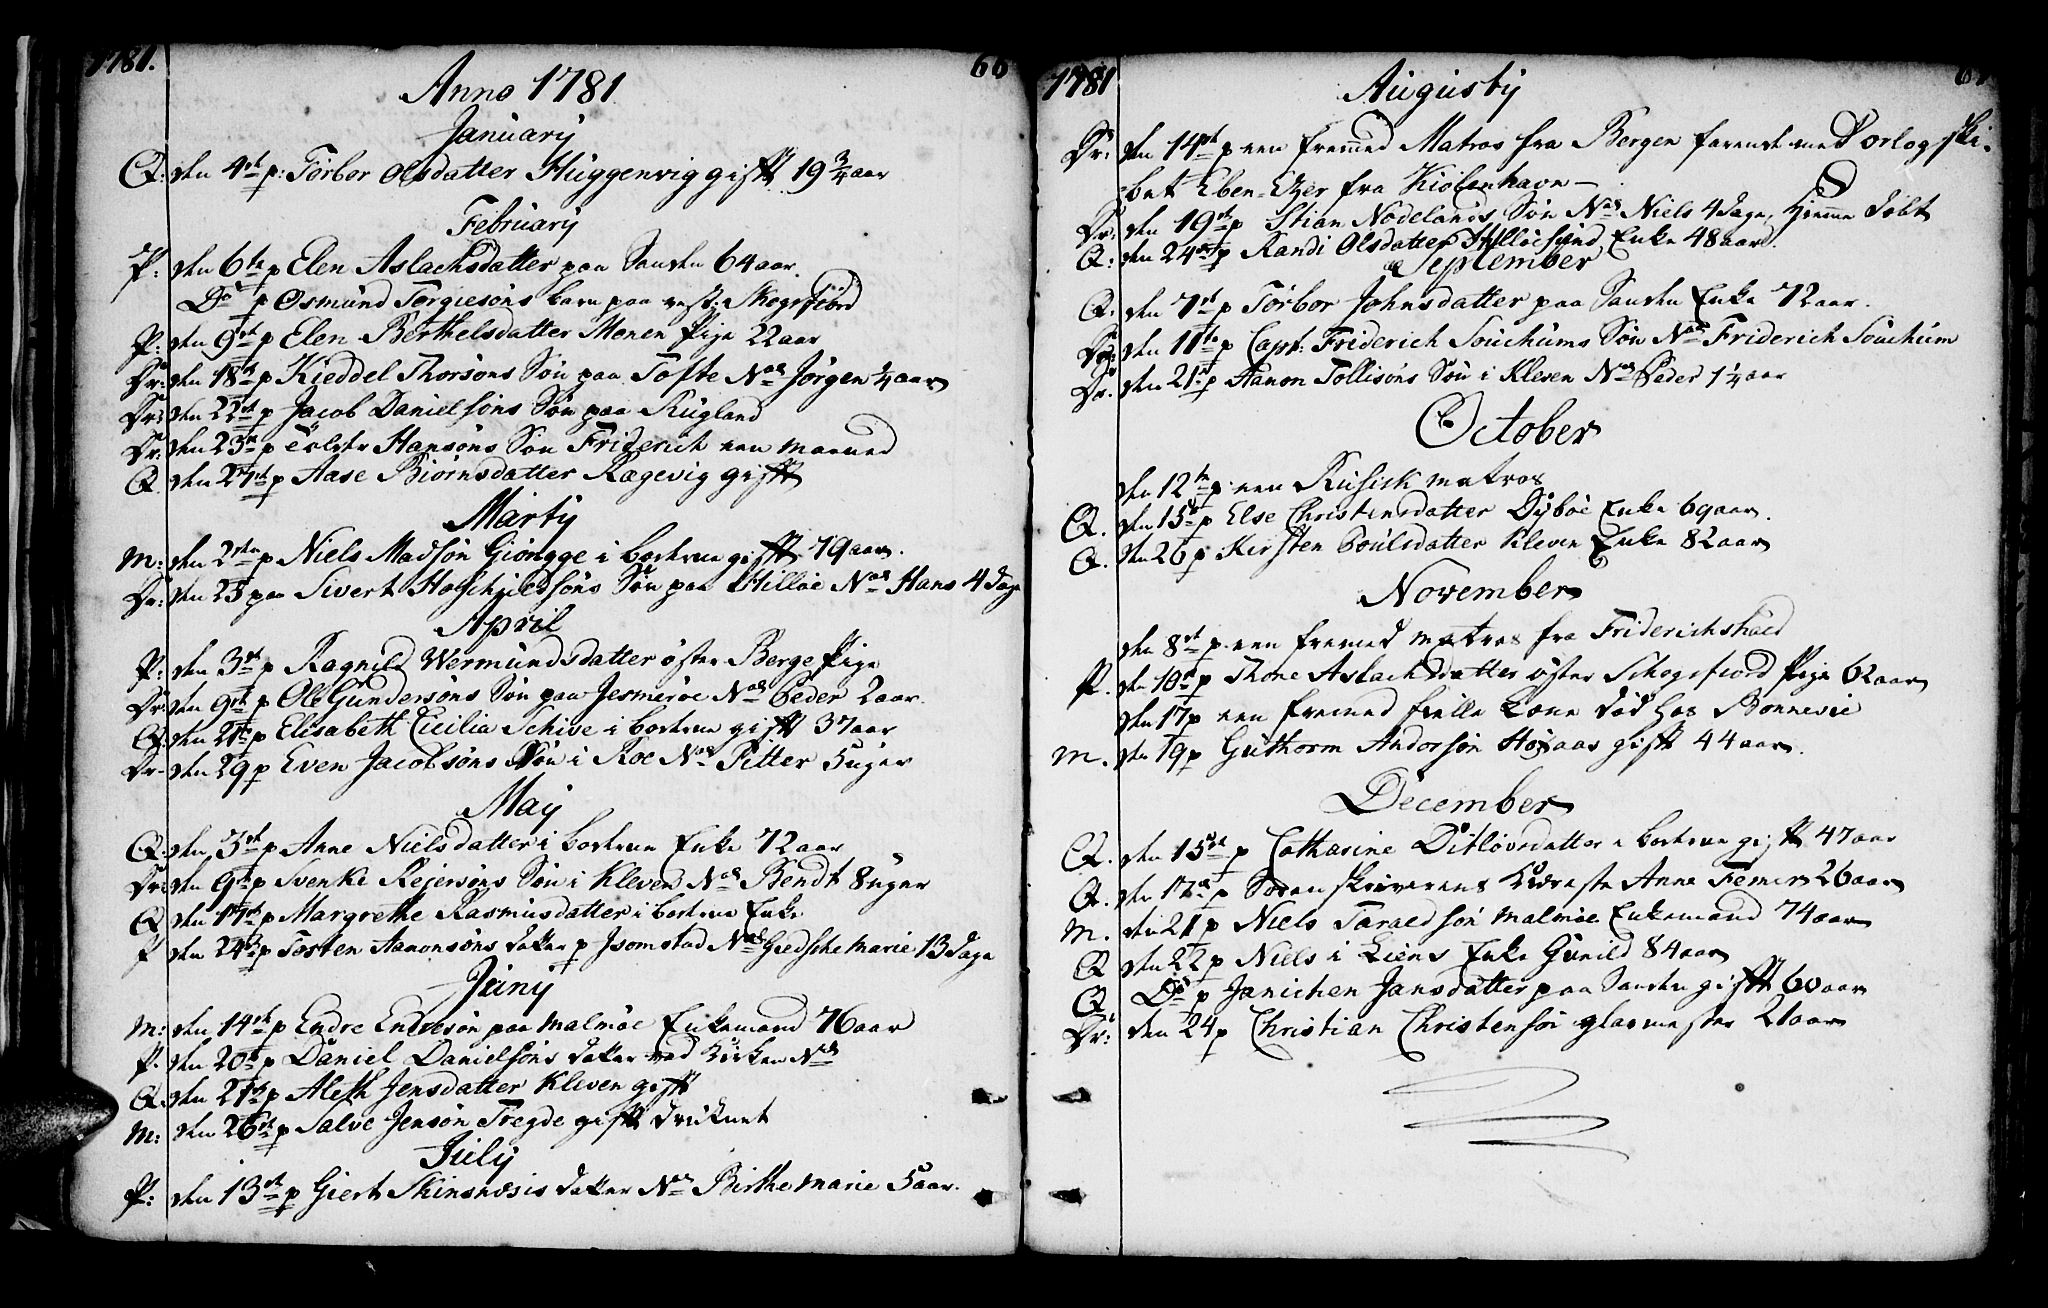 1781.
66
Anno 1781
Januarÿ
Q: den 4de p: Torbor Olsdatter Huggenvig gift 19 3/4 aar
Februarÿ
P: den 6te p Elen Aslachsdatter paa Sanden 64 aar.
Do p Osmund Tergiesøns barn paa Skogsfiord
P: den 9de p Elen Berthelsdatter Monen Pige 22 aar
Dr: den 18de p Kieddel Thorsøns Søn paa Tofte Nas Jørgen 1/4 aar
Dr: den 22de p Jacob Danielsøns Søn paa Rugland
Dr: den 23de p Hansøns Søn Friderich een maaned
Q den 27de p Aase Biørnsdatter Ragevig gift
Martÿ
M: den 2den p Niels Madsøn Giøngge i boeden gift 79 aar.
Dr: den 23 paa Sivert Søn paa Hilløe Nas Hans 4 dage
April
P: den 3de p Ragnild Wermundsdatter øster Berge Pige
Dr: den 9de p Ole Gundersøns Søn paa Jesmerøe Nas Peder 2 aar.
Q: den 21de p Elisabeth Cicilia Schive i gift 37 aar
Dr. den 29 p Even Jacobsøns Søn i Roe Nas Pitter 5 uger
Maÿ
Q: den 3de p Anne Nielsdatter i Enke 72 aar
Dr: den 9de p Svenke Rejersøns Søn i Kleven Nas Bendt 8 uger
Q den 17de p Margrethe Rasmusdatter i Enke
P den 24de p Tosten Aanonsøns datter p Isomstad Nas Giedsche Marie 13 dage
Junÿ
M: den 14de p Endre Endresøn paa Malmøe Enkemand 76 aar
P. den 20de p Daniel Danielsøns datter ved Kirken Nas
Q. den 21de p Aleth Jensdatter Kleven gift
M: den 26de p Salve Jensøn Tregde gift druknet
Julÿ
P: den 13de p Giert Skinsnesis datter Nas Birthe Marie 5 aar.
1781
67
Augustÿ
Dr: den 14de p een fremed Matros fra Bergen farende med Orlogski-
bet Eben-Ezer fra Kiøbenhavn
Dr: den 19de p Stian Nodelands Søn Nas Niels 4 dage, hjemme døbt
Q: den 24de p Randi Olsdatter Hilløesund, Enke 48 aar.
September
Q. den 7de p Torbor Johnsdatter paa Sanden Enke 72 aar.
Dr: den 11te p Capt: Friderich Souchums Søn Nas Friderich Souchum
Dr. den 21de p Aanon Tollisøns Søn i Klesen Nas Peder 1 1/4 aar
October
den 12te p een Rusisk matros
Q. den 15de p Else Christensdatter Dÿbøe Enke 69 aar.
Q. den 26 p Kirsten Poulsdatter Kleven Enke 82 aar
November
den 8de p een fremed matros fra Friderichshald
P. den 10de p Thone Aslachsdatter øster Schogsfiord Pige 62 aar
den 17 p een fremed død hos Bonnevie
M. den 19 p Guthorm Andorsøn gift 44 aar.
December
Q. den 15de p Catharine Ditløvsdatter i gift 47 aar
Q. den 17de p Sorenskriverens Kiæreste Anne Femer 26 aar
M. den 21 p Niels Taraldsøn Malmøe Enkemand 74 aar
Q den 22 p Niels i Liens Enke Gunild 84 aar
Q Do p Janichen Jansdatter paa Sanden gift 60 aar
Dr: den 24 p Christian Christensøn glarmester 21 aar